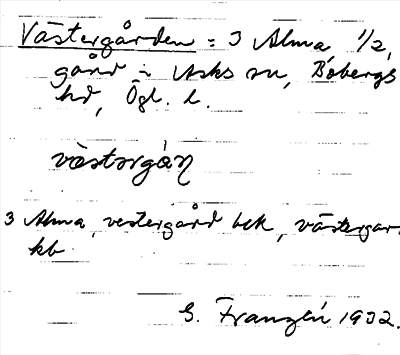 Västergården = 3 Alma, 1/2,
gård i Asks sn, Bobergs
hd, Ögl. l.
västərgán
3 Alma, vestergård bek, västergar.
kb.
G. Franzén 1932.